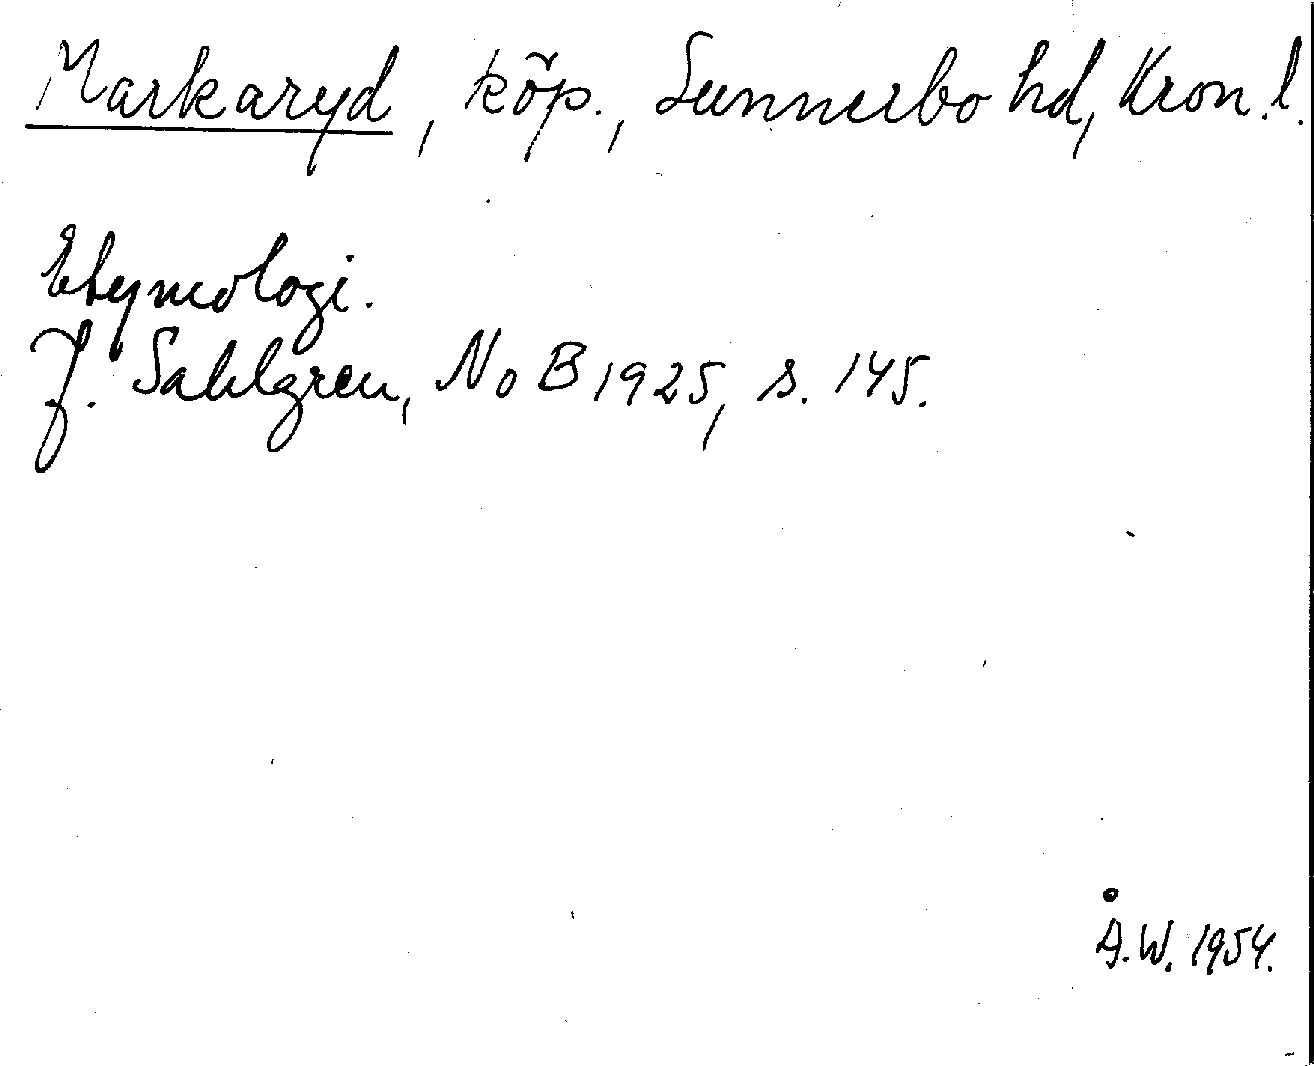 Markaryd, köp., Sunnerbo hd, Kron. l.
Etymologi.
J. Sahlgren, NoB 1925, s. 145.
Å.W. 1954.